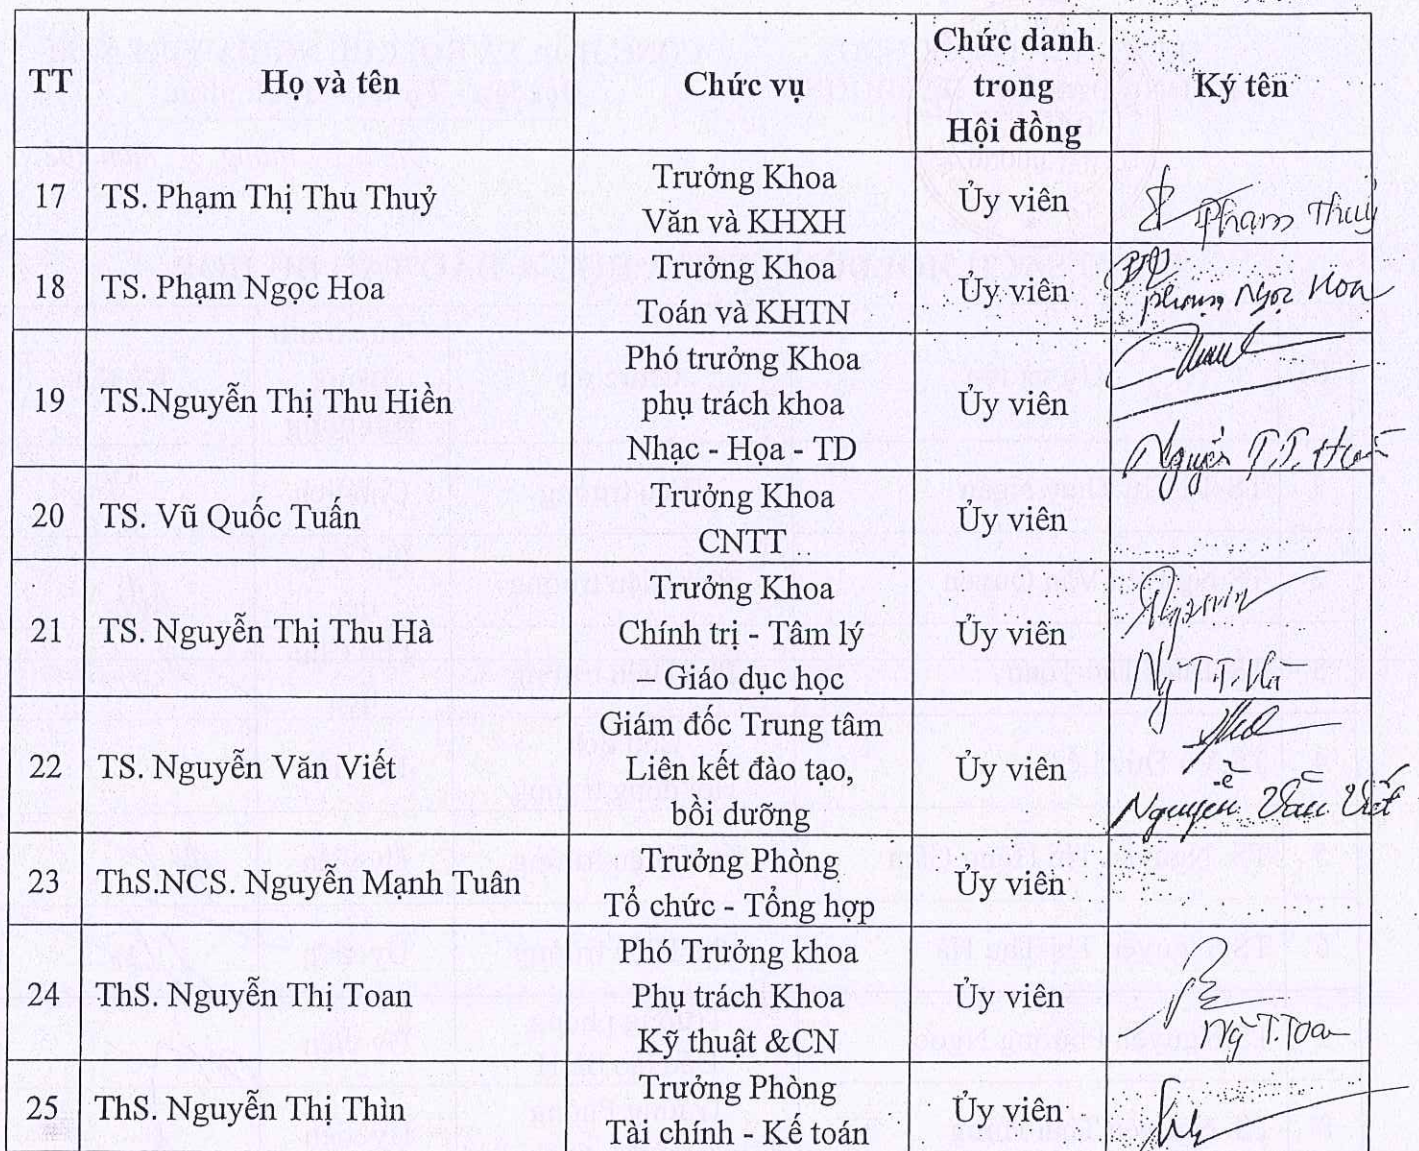 TT
Họ và tên
Chức vụ
Chức danh
trong
Hội đồng
Ký tên
17
TS. Phạm Thị Thu Thuỷ
Trưởng Khoa
Văn và KHXH
Ủy viên
Phạm Thuỷ
18
TS. Phạm Ngọc Hoa
Trưởng Khoa
Toán và KHTN
Ủy viên
Phạm Ngọc Hoa
19
TS.Nguyễn Thị Thu Hiền
Phó trưởng Khoa
phụ trách khoa
Nhạc - Họa - TD
Ủy viên
Nguyễn T.T. Hiền
20
TS. Vũ Quốc Tuấn
Trưởng Khoa
CNTT
Ủy viên
21
TS. Nguyễn Thị Thu Hà
Trưởng Khoa
Chính trị - Tâm lý
Giáo dục học
Ủy viên
Ng T.T.Hà
22
TS. Nguyễn Văn Viết
Giám đốc Trung tâm
Liên kết đào tạo,
bồi dưỡng
Ủy viên
Nguyễn Văn Viết
23
ThS.NCS. Nguyễn Mạnh Tuân
Trưởng Phòng
Tổ chức - Tổng hợp
Ủy viên
24
ThS. Nguyễn Thị Toan
Phó Trưởng khoa
Phụ trách Khoa
Kỹ thuật &CN
Ủy viên
Ng T.Toan
25
ThS. Nguyễn Thị Thìn
Trưởng Phòng
Tài chính - Kế toán
Ủy viên